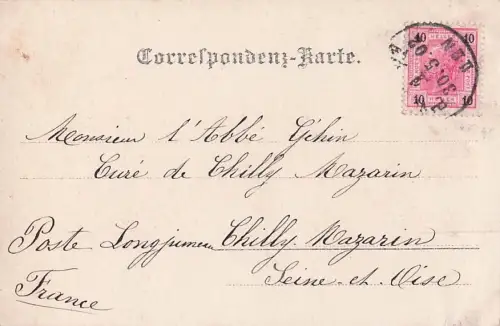 Correspondenz-Karte.
10 10
10 10
30.5.02
Monsieur l'Abbé Géhin
Curé de Chilly Mazarin
Poste Longjumeau Chilly. Mazarin
Seine-et-Oise
France